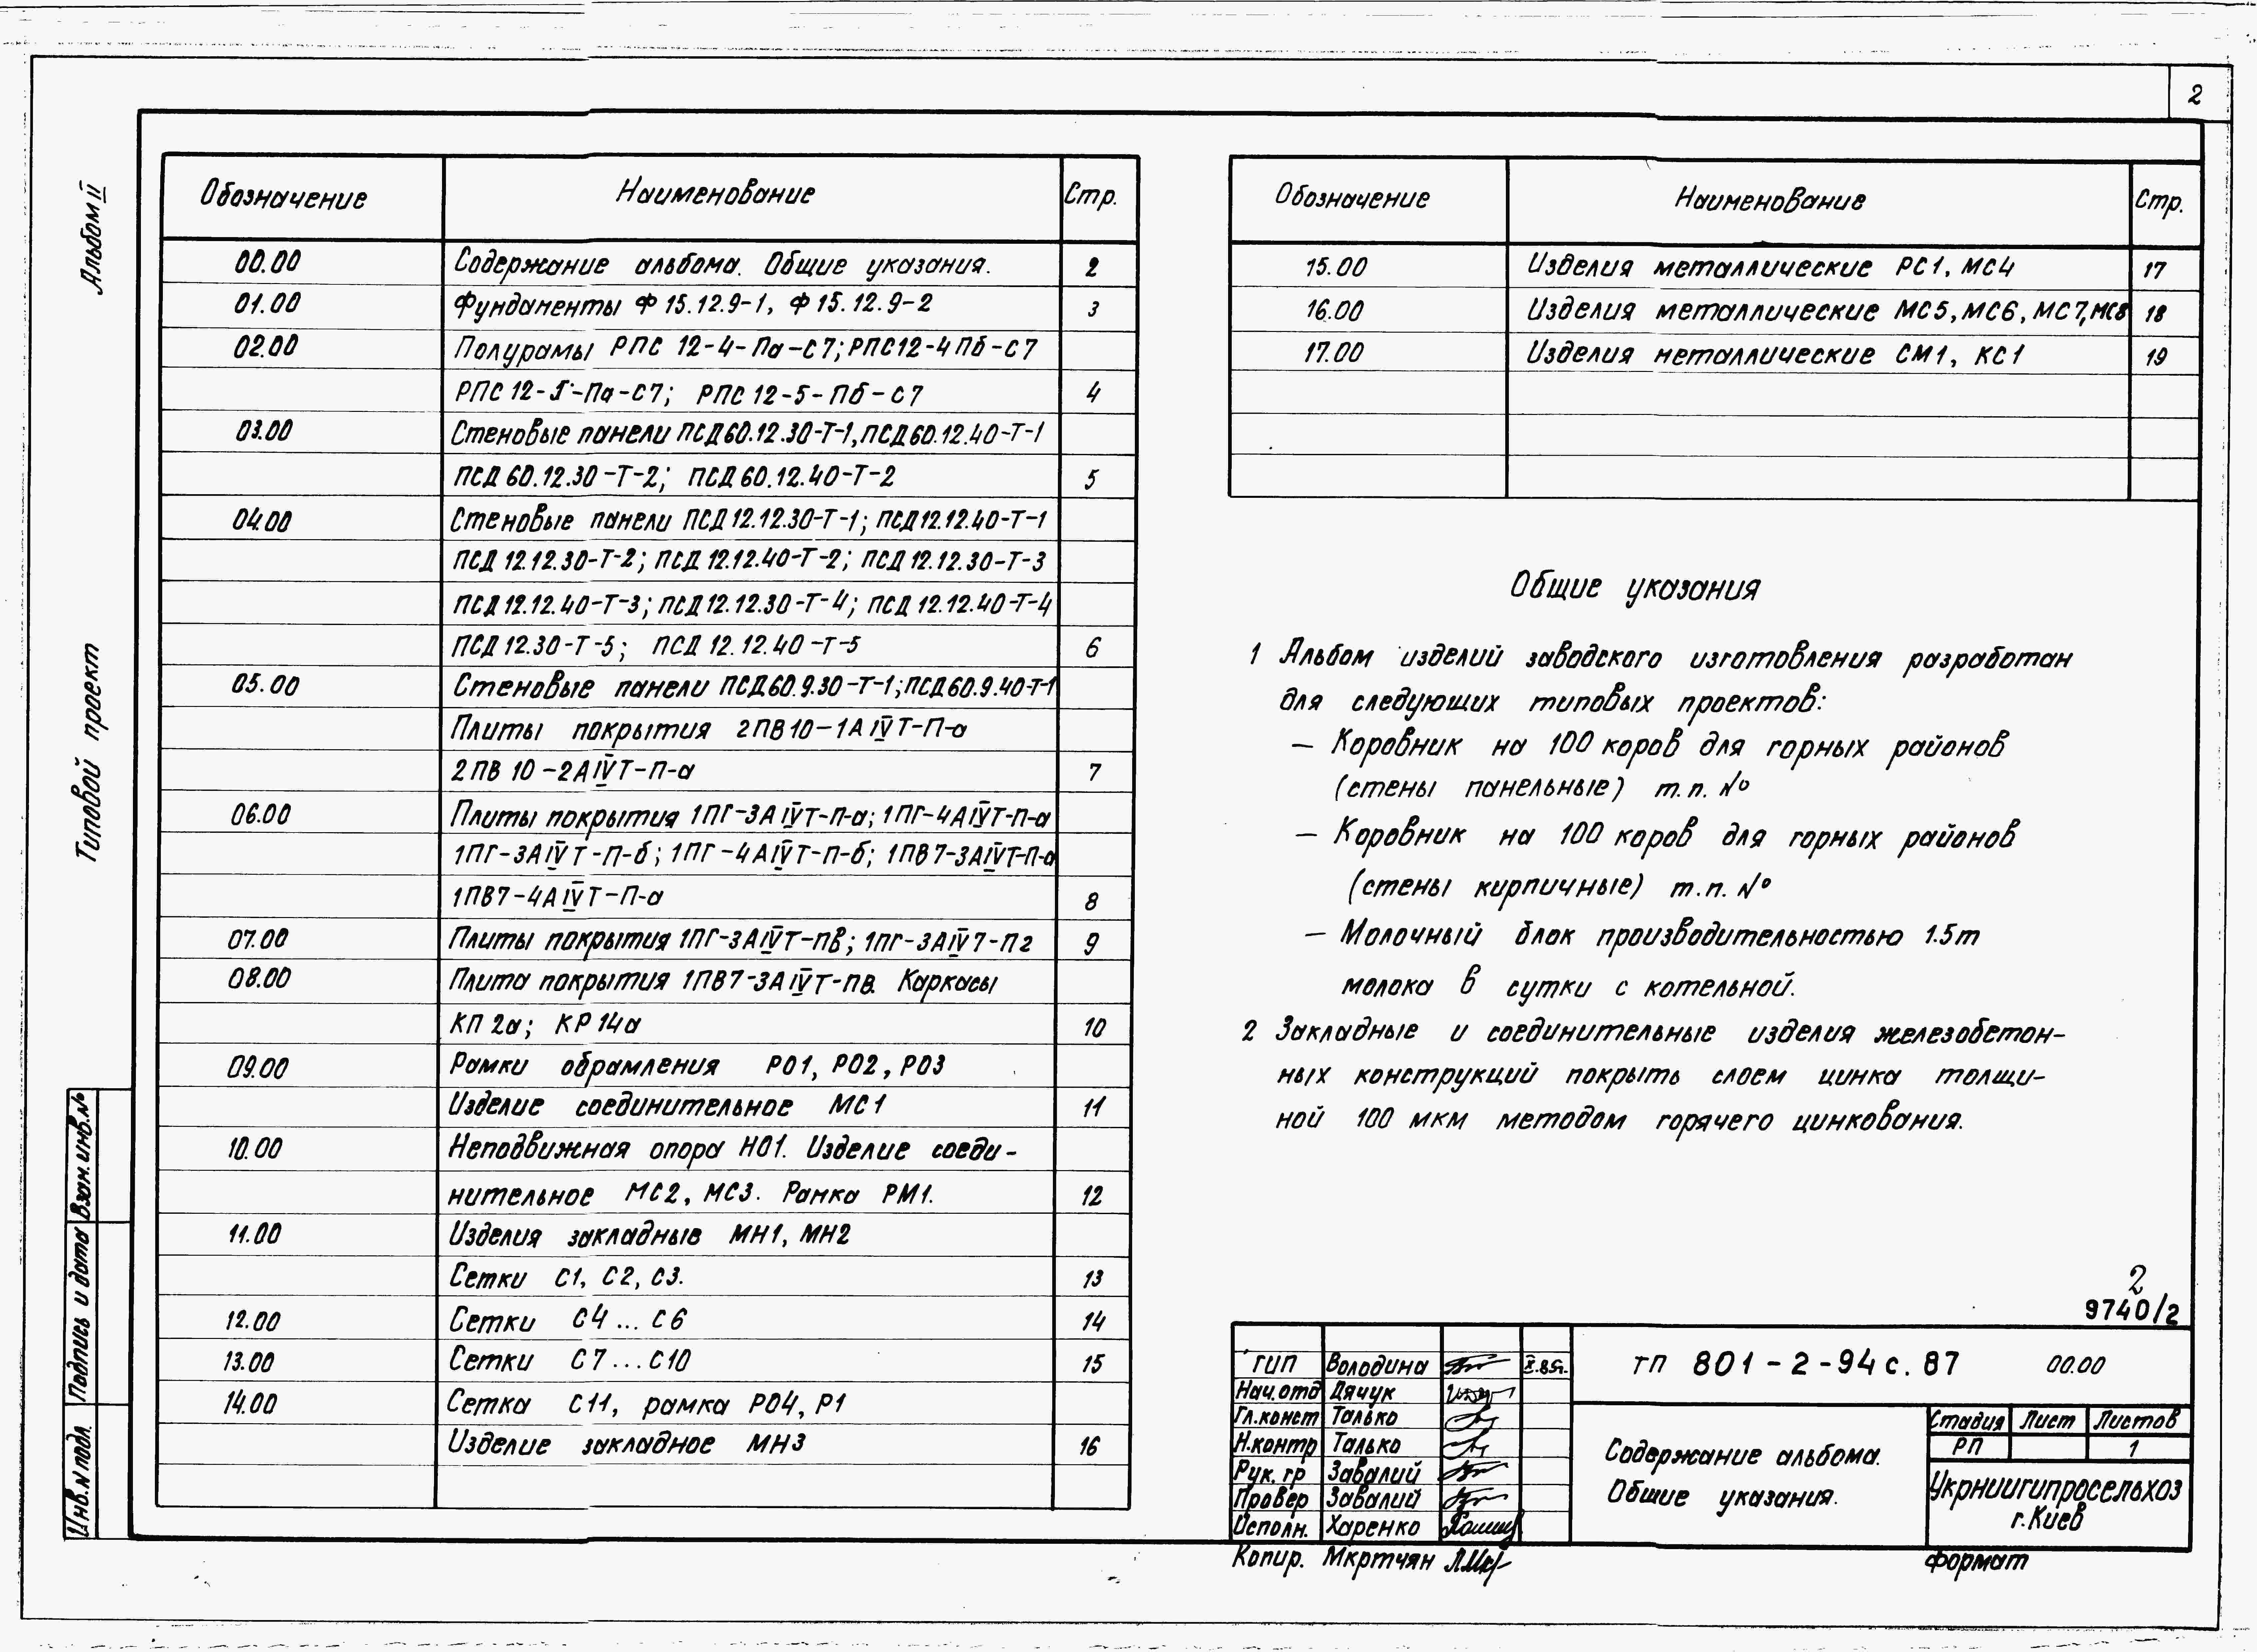 2
Альбом II
Типовой проект
Взам. инв. №
Подпись и дата
Инв. N подл.
Обозначение Наименование Стр.
00.00 Содержание альбома. Общие указания. 2
01.00 Фундаменты Ф 15.12.9-1, Ф 15.12.9-2 3
02.00 Полурамы РПС 12-4-Па-С7; РПС12-4Пб-С7
РПС 12-5-Па-С7; РПС 12-5-Пб-С7 4
03.00 Стеновые панели ПСД60.12.30-Т-1, ПСД60.12.40-Т-1
ПСД 60.12.30-Т-2; ПСД 60.12.40-Т-2 5
04.00 Стеновые панели ПСД12.12.30-Т-1; ПСД12.12.40-Т-1
ПСД 12.12.30-Т-2; ПСД 12.12.40-Т-2; ПСД 12.12.30-Т-3
ПСД 12.12.40-Т-3; ПСД 12.12.30-Т-4; ПСД 12.12.40-Т-4
ПСД 12.30-Т-5; ПСД 12.12.40-Т-5 6
05.00 Стеновые панели ПСД60.9.30-Т-1; ПСД60.9.40-Т-1
Плиты покрытия 2ПВ10-1АIVТ-П-а
2ПВ 10-2АIVТ-П-а 7
06.00 Плиты покрытия 1ПГ-3АIVТ-П-а; 1ПГ-4АIVТ-П-а
1ПГ-3АIVТ-П-б; 1ПГ-4АIVТ-П-б; 1ПВ7-3АIVТ-П-а
1ПВ7-4АIVТ-П-а 8
07.00 Плиты покрытия 1ПГ-3АIVТ-Пв; 1ПГ-3АIV7-Пг 9
08.00 Плита покрытия 1ПВ7-3АIVТ-Пв. Каркасы
КП 2а; КР 14а 10
09.00 Рамки обрамления РО1, РО2, РО3
Изделие соединительное МС1 11
10.00 Неподвижная опора НО1. Изделие соеди-
нительное МС2, МС3. Рамка РМ1. 12
11.00 Изделия закладные МН1, МН2
Сетки С1, С2, С3. 13
12.00 Сетки С4 ... С6 14
13.00 Сетки С7 ... С10 15
14.00 Сетка С11, рамка РО4, Р1
Изделие закладное МН3 16
Обозначение Наименование Стр.
15.00 Изделия металлические РС1, МС4 17
16.00 Изделия металлические МС5, МС6, МС7, МС8 18
17.00 Изделия металлические СМ1, КС1 19
Общие указания
1 Альбом изделий заводского изготовления разработан
для следующих типовых проектов:
– Коровник на 100 коров для горных районов
(стены панельные) т.п. №
– Коровник на 100 коров для горных районов
(стены кирпичные) т.п. №
– Молочный блок производительностью 1.5т
молока в сутки с котельной.
2 Закладные и соединительные изделия железобетон-
ных конструкций покрыть слоем цинка толщи-
ной 100 мкм методом горячего цинкования.
2
9740/2
ГИП Володина X.85г.
Нач.отд Дячук
Гл.конст Талько
Н.контр Талько
Рук. гр Завалий
Провер Завалий
Исполн. Харенко
Копир. Мкртчян
ТП 801-2-94с.87 00.00
Содержание альбома.
Общие указания.
Стадия Лист Листов
РП 1
Укрниигипросельхоз
г.Киев
Формат